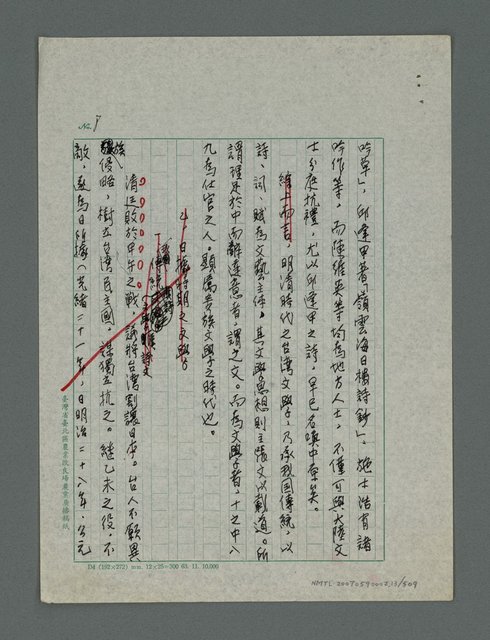 No. 8
吟草」，邱逢甲著「嶺雲海日樓詩鈔」，施士浩有諸
吟作等，而陳維英等均為地方人士，不僅可與大陸文
士分庭抗禮，尤以邱逢甲之詩，早已名噪中原矣。
綜上而言，明清時代之台灣文學，乃承我國傳統，以
詩、詞、賦為文藝主体，其文學思想則主張文以載道。所
謂理足於中而辭達意者，謂之文。而為文學者，十之中八
九為仕宦之人。顯屬貴族文學之時代也。
4 日據時期之文學
清廷敗於甲午之戰，訴將台灣割讓日本。台人不願異
族侵略，樹立台灣民主國，謀獨立抗之。繼乙未之役，不
敵，遂為日所據（光緒二十一年，日明治二十八年，公元
臺灣省臺北區農業改良場農業廣播稿紙
D4 (192×272) mm. 12×25=300 63. 11. 10,000
NMTL 20070590002, 13/509